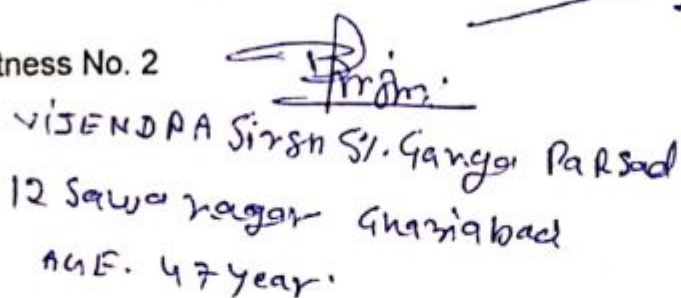 tness No. 2
VIJENDRA Sirgn S/. Ganga PaRsad
12 Sawa nagar Ghaziabad
AGE. 47 year.